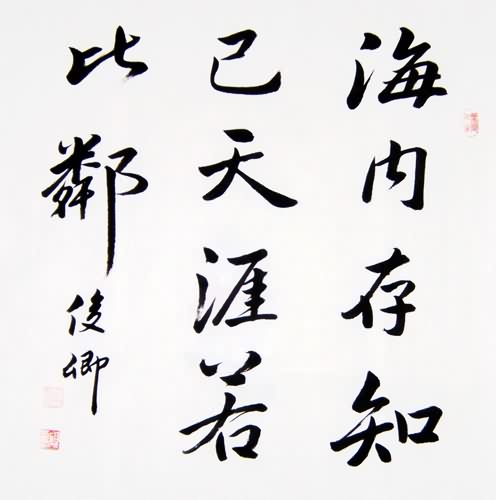 海内存知
己天涯若
比鄰
俊卿